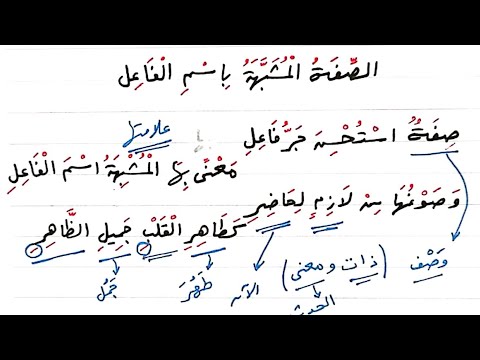 الصِّفَةُ الْمُشَبَّهَةُ بِاسْمِ الْفَاعِلِ
صِفَةٌ اسْتُحْسِنَ جَرُّ فَاعِلِ بِهَا
علامتها
مَعْنًى بِهَا الْمُشْبِهَةُ اسْمَ الْفَاعِلِ
وَصَوْغُهَا مِنْ لَازِمٍ لِحَاضِرِ كَطَاهِرِ الْقَلْبِ جَمِيلِ الظَّاهِرِ
وَصْف (ذات ومعنى) الآن طَهُرَ جَمُلَ
الحدث